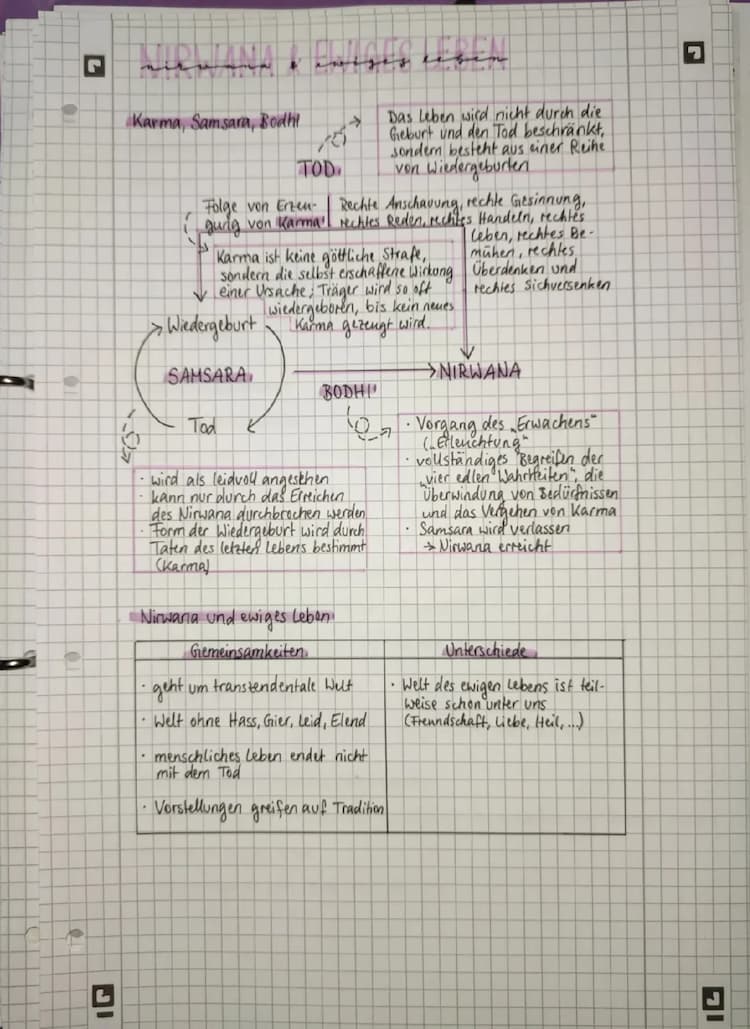 NIRWANA & EWIGES LEBEN
nirwana & ewiges leben
Karma, Samsara, Bodhi
Das Leben wird nicht durch die
Geburt und den Tod beschränkt,
sondern besteht aus einer Reihe
von Wiedergeburten
TOD
Folge von Erzeu-
gung von Karma
Rechte Anschauung, rechte Gesinnung,
rechtes Reden, rechtes Handeln, rechtes
Leben, rechtes Be-
mühen, rechtes
Überdenken und
rechtes Sichversenken
Karma ist keine göttliche Strafe,
sondern die selbst erschaffene Wirkung
einer Ursache; Träger wird so oft
wiedergeboren, bis kein neues
Karma gezeugt wird.
Wiedergeburt
SAMSARA
Tod
BODHI
NIRWANA
· Vorgang des „Erwachens“
(„Erleuchtung“
· vollständiges Begreifen der
„vier edlen Wahrheiten“, die
Überwindung von Bedürfnissen
und das Vergehen von Karma
· Samsara wird verlassen
→ Nirwana erreicht
· wird als leidvoll angesehen
· kann nur durch das Erreichen
des Nirwana durchbrochen werden
· Form der Wiedergeburt wird durch
Taten des letzten Lebens bestimmt
(Karma)
Nirwana und ewiges Leben
Gemeinsamkeiten
· geht um transtendentale Welt
· Welt ohne Hass, Gier, Leid, Elend
· menschliches Leben endet nicht
mit dem Tod
· Vorstellungen greifen auf Tradition
Unterschiede
· Welt des ewigen Lebens ist teil-
weise schon unter uns
(Freundschaft, Liebe, Heil, ...)